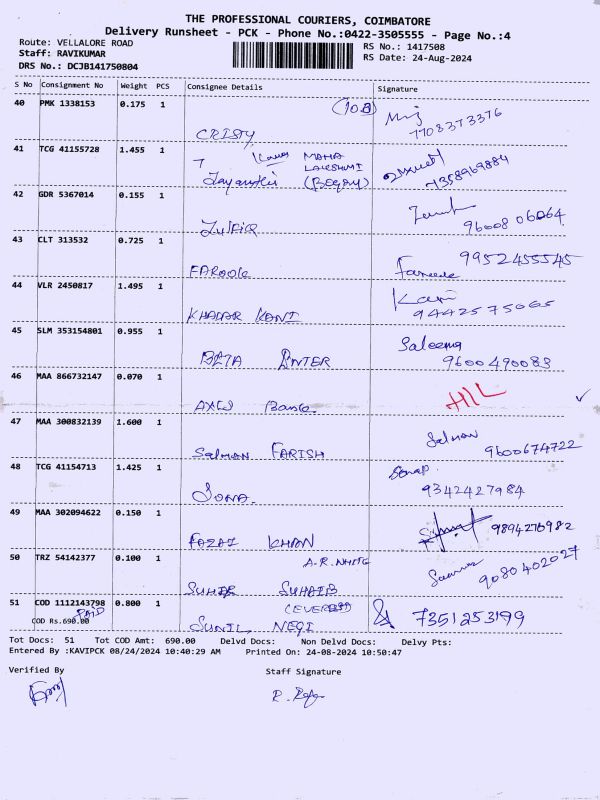 THE PROFESSIONAL COURIERS, COIMBATORE
Delivery Runsheet - PCK - Phone No.:0422-3505555 - Page No.:4
Route: VELLALORE ROAD
Staff: RAVIKUMAR
DRS No.: DCJB141750804
RS No.: 1417508
RS Date: 24-Aug-2024
S No Consignment No Weight PCS Consignee Details Signature
40 PMK 1338153 0.175 1 (10B)
CRISTY 7708373376
41 TCG 41155728 1.455 1 MAHA
LAKSHMI
(Begam) 7358969884
42 GDR 5367014 0.155 1
9600806064
43 CLT 313532 0.725 1
FAROOK Fareeda 9952455545
44 VLR 2450817 1.495 1
KHADAR KANI Kani 9442575065
45 SLM 353154801 0.955 1 Saleema
BETA ENTER 9600490083
46 MAA 866732147 0.070 1
AXIS Bank
47 MAA 300832139 1.600 1 Salman
Salman FARISH 9600674722
48 TCG 41154713 1.425 1
SONA. 9342427984
49 MAA 302094622 0.150 1
FAZAI KHAN 9894276982
50 TRZ 54142377 0.100 1 A.R.
SUHAIB 9080402027
51 COD 1112143798 0.800 1
PAID
COD Rs.690.00
SUNIL NEGI 7351253199
Tot Docs: 51 Tot COD Amt: 690.00 Delvd Docs: Non Delvd Docs: Delvy Pts:
Entered By :KAVIPCK 08/24/2024 10:40:29 AM Printed On: 24-08-2024 10:50:47
Verified By Staff Signature